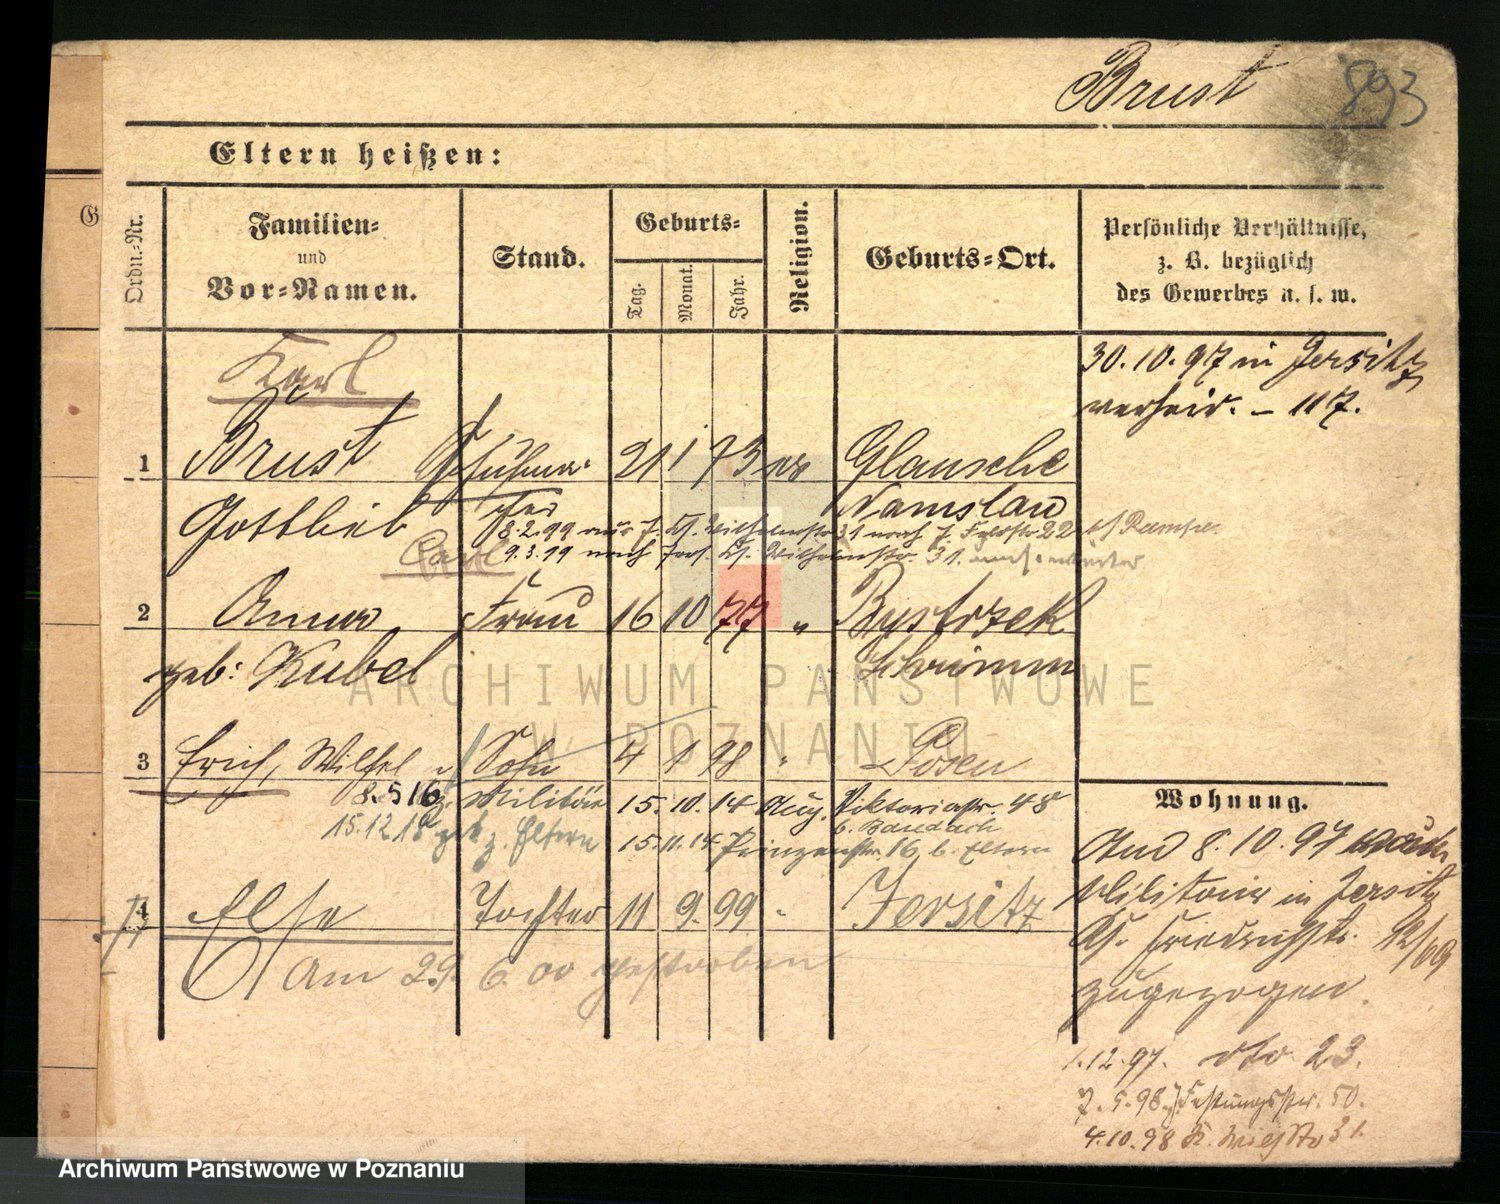 Brust 893
Eltern heißen:
G
Ordn.-Nr.
Familien-
und
Vor-Namen.
Stand.
Geburts-
Tag.
Monat.
Jahr.
Religion.
Geburts-Ort.
Persönliche Verhältnisse,
z. B. bezüglich
des Gewerbes u. s. w.
Karl
30.10.97 in Jersitz
verheir. – 117.
1 Brust Schuhma- 21 1 73 Glausche
Gottlieb cher Namslau
8.2.99 31 nach 22
Carl 9.3.99 nach Jers. Kl. Wilhelmstr. 31.
2 Anna Frau 16 10 77 " Bystrzek
geb: Kubel Schrimm
3 Erich, Sohn 4 1 98 " Posen
8.5 16 z. Militär 15. 10. 14 Aug. Viktoriastr. 48
15.12.18 z. Eltern 15. 11. 14 Prinzenstr. 16 b. Eltern
4 Else Tochter 11 9. 99 " Jersitz
Am 29. 6. 00 gestorben
Wohnung.
8.10.97
in Jersitz
Friedrichstr. 12/09
zugezogen.
1.12.97. dto 23.
7.5.98 Festungsstr. 50.
4.10.98 31.
ARCHIWUM PAŃSTWOWE
W POZNANIU
Archiwum Państwowe w Poznaniu